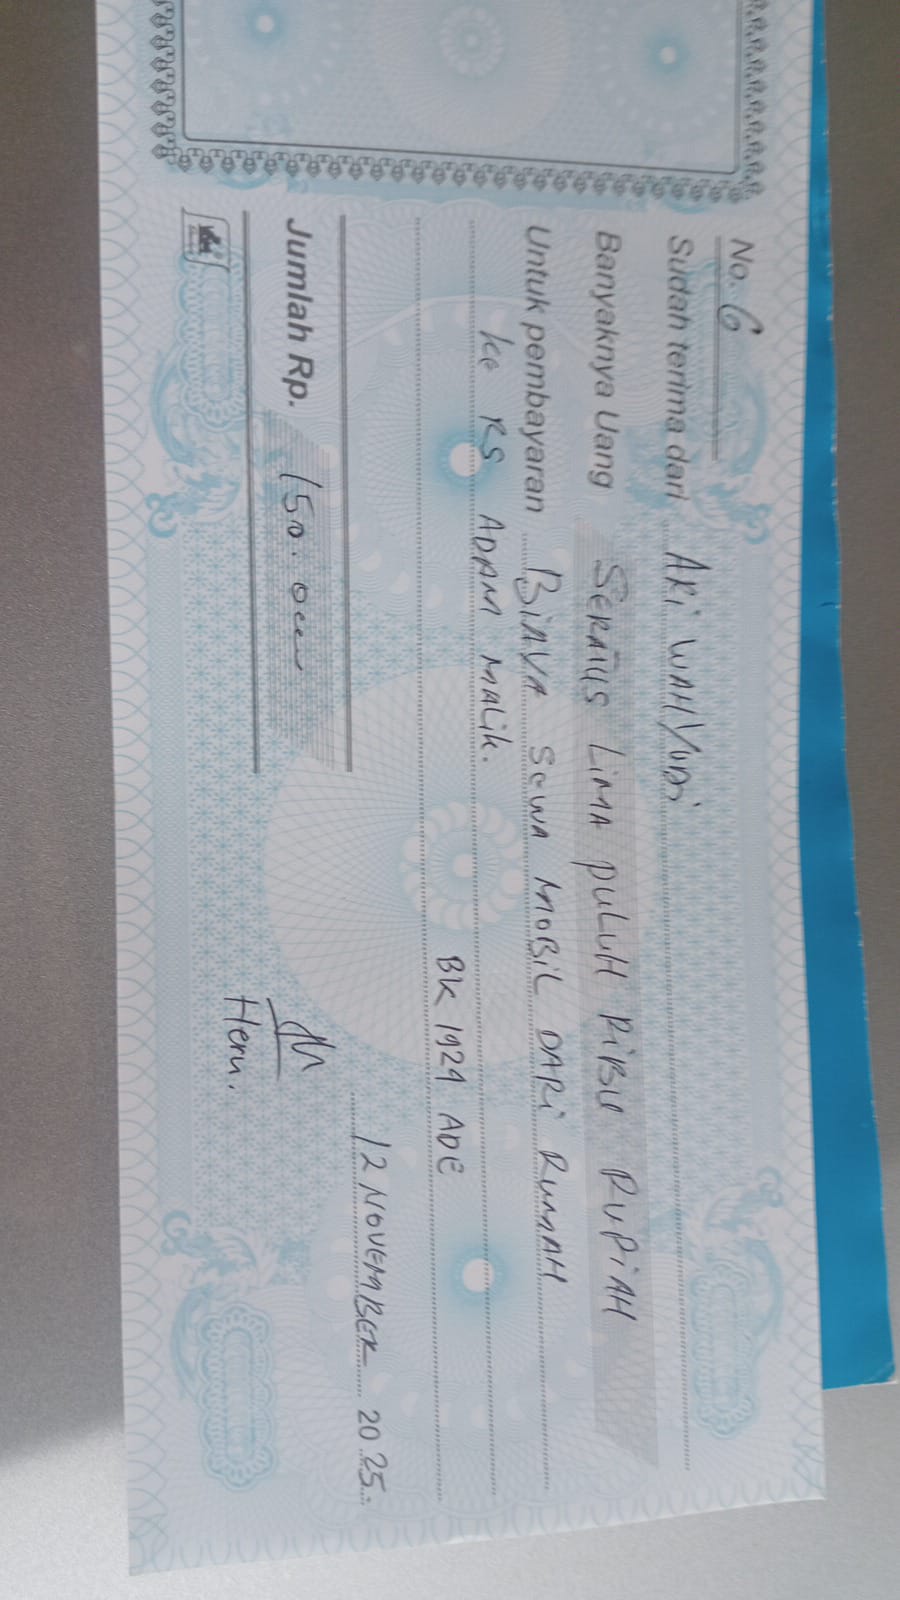 No. 6
Sudah terima dari ARi WAHYUDi
Banyaknya Uang SERATUS LiMA puLuH RiBU RUPiAH
Untuk pembayaran BiAYA SEWA MOBiL DARi RUMAH
ke RS ADAM MALiK.
BK 1924 ADE
12 NOVEMBER 2025.
Jumlah Rp. 150.000
Heru.